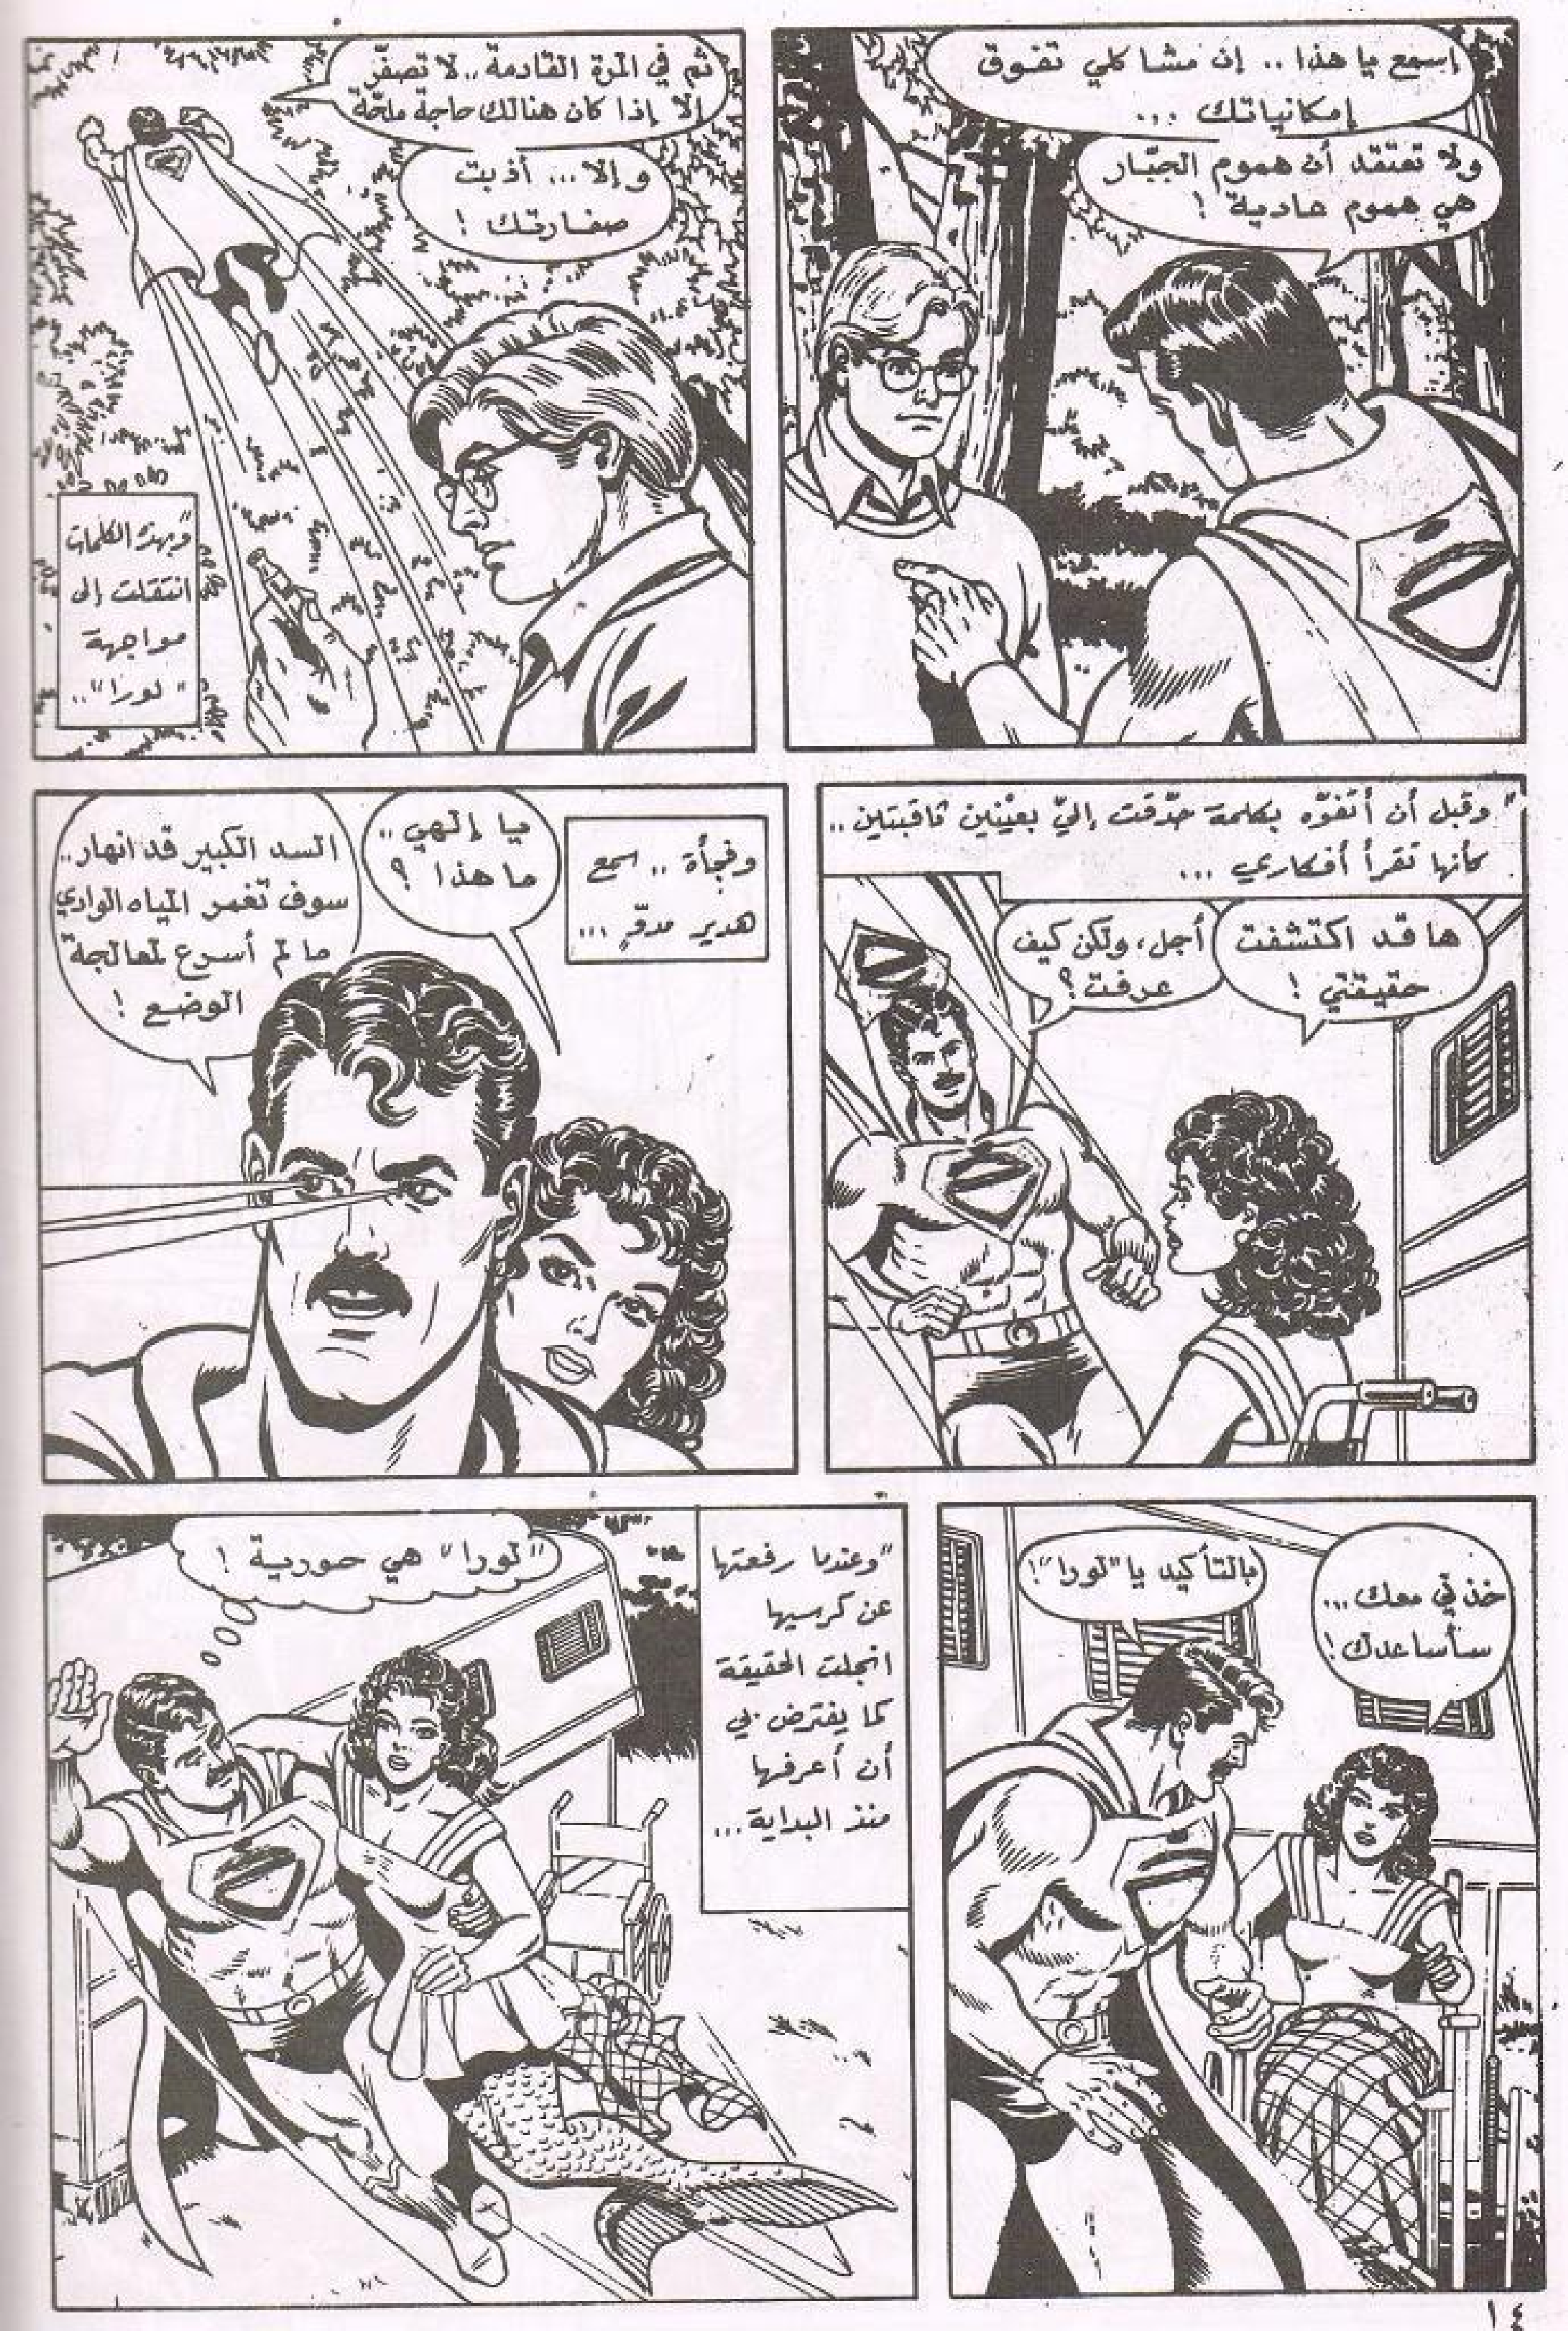 إسمع يا هذا .. إن مشاكلي تفوق
إمكانياتك ...
ولا تعتقد أن هموم الجبّار
هي هموم عادية !
ثم في المرة القادمة .. لا تصفّر
إلا إذا كان هنالك حاجة ملحّة
و إلا ... أذبت
صفارتك !
"وبهذه الكلمات
انتقلت إلى
مواجهة
"لورا" ..
"وقبل أن أتفوّه بكلمة حدّقت إليّ بعينين ثاقبتين ..
كأنها تقرأ أفكاري ...
ها قد اكتشفت
حقيقتي !
أجل، ولكن كيف
عرفت ؟
وفجأة .. سمع
هدير مدوٍّ ...
يا إلهي ..
ما هذا ؟
السد الكبير قد انهار ..
سوف تغمر المياه الوادي
ما لم أسرع لمعالجة
الوضع !
خذني معك ...
سأساعدك !
بالتأكيد يا "لورا" !
"وعندما رفعتها
عن كرسيها
انجلت الحقيقة
كما يفترض بي
أن أعرفها
منذ البداية ...
"لورا" هي حورية !
١٤